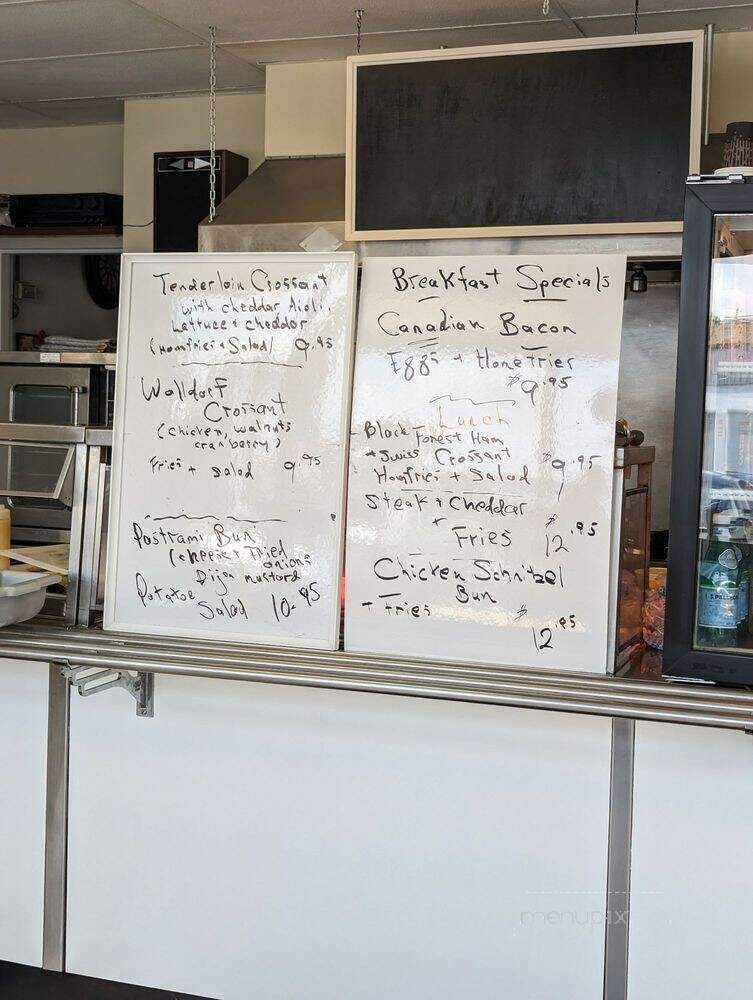 Tenderloin Crossant
with cheddar, Aioli,
Lettuce + cheddar
(Homfries + Salad) 9.95
Walldorf
Crossant
(chicken, walnuts
cranberry)
Fries + salad 9.95
Postrami Bun
(cheese + Fried
onions
Dijon mustard
Potatoe
Salad 10.95
Breakfast Specials
Canadian Bacon
Eggs + Homefries
$9.95
Lunch
Black Forest Ham
+ Swiss Crossant $9.95
Homfries + Salad
Steak + Cheddar
+ Fries $12.95
Chicken Schnitzel
Bun
+ fries $12.95
menupix